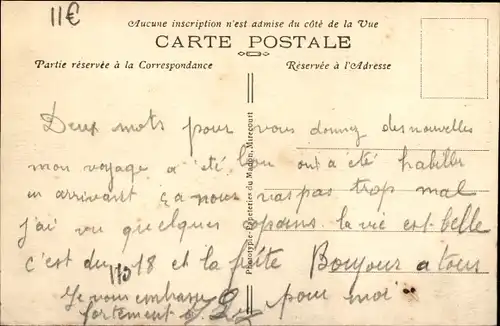 11€
Aucune inscription n'est admise du côté de la Vue
CARTE POSTALE
Partie réservée à la Correspondance
Réservée à l'Adresse
Deux mots pour vous donnez des nouvelles
mon voyage a été bon on a été habiller
en arrivant ça nous vas pas trop mal
j'ai vu quelques copains la vie est belle
c'est du 18 et la fuite Bonjour a tous
Je vous embrasse pour moi
fortement
Phototypie-Papeteries du Madon, Mirecourt